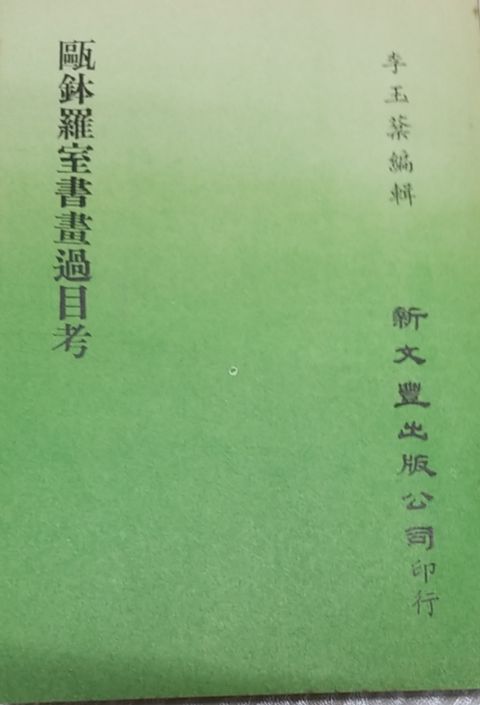 李玉棻編輯
甌鉢羅室書畫過目考
新文豐出版公司印行